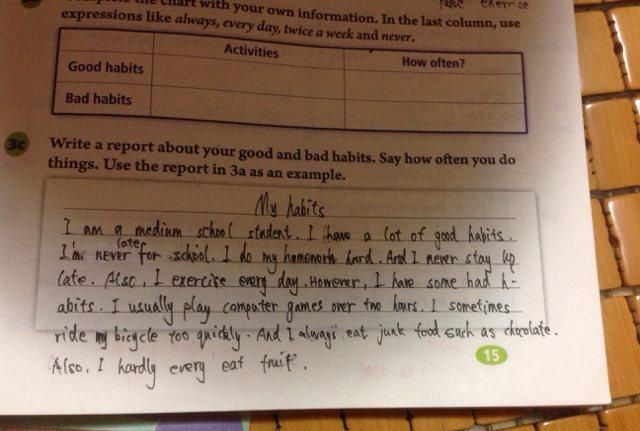 chart with your own information. In the last column, use
expressions like always, every day, twice a week and never.
Activities
How often?
Good habits
Bad habits
3c
Write a report about your good and bad habits. Say how often you do
things. Use the report in 3a as an example.
My habits
I am a medium school student. I have a lot of good habits.
I'm never late for school. I do my homework hard. And I never stay up
late. Also, I exercise every day. However, I have some bad h-
abits. I usually play computer games over two hours. I sometimes
ride my bicycle too quickly. And I always eat junk food such as chocolate.
Also, I hardly every eat fruit.
15